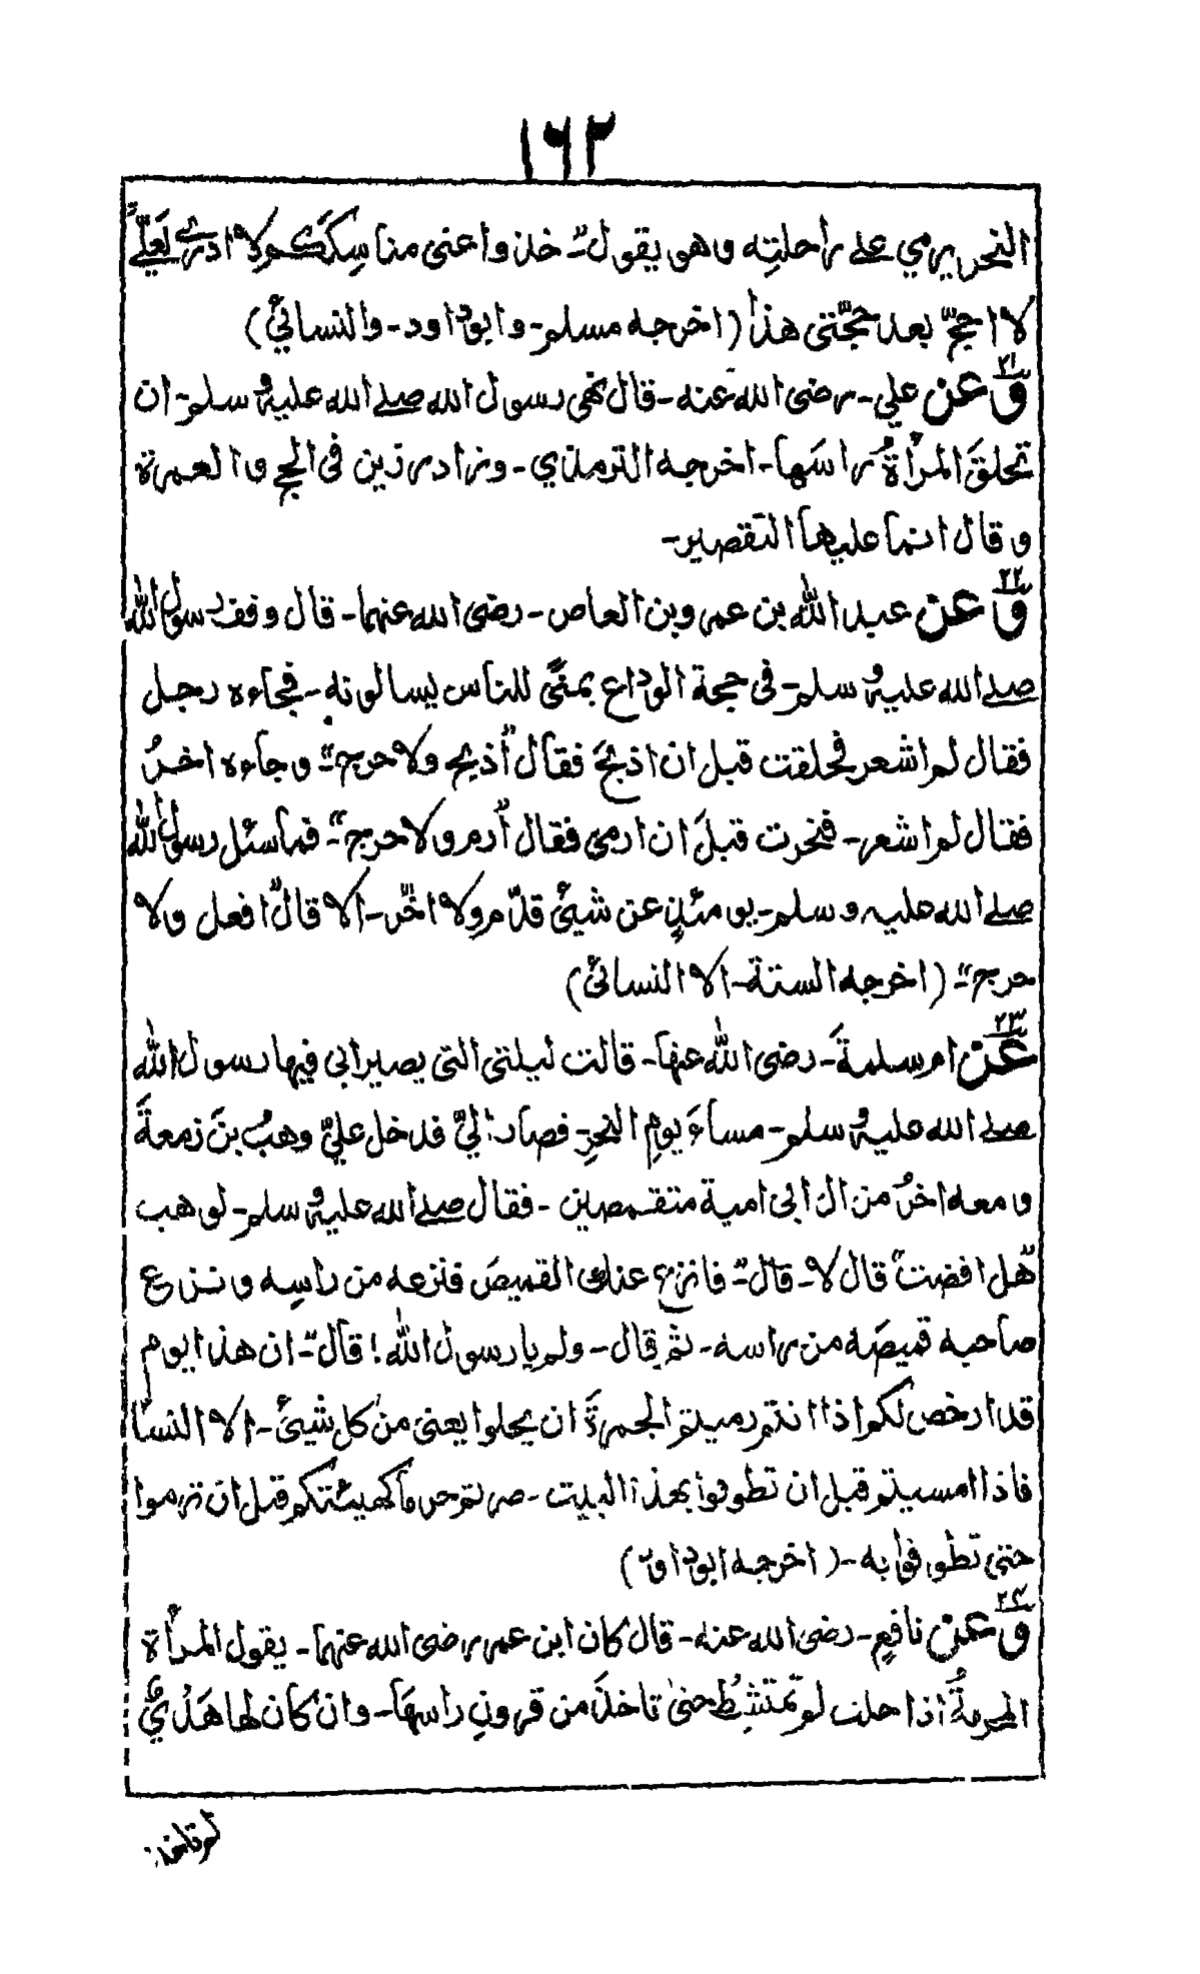 ١٦٢
النحر يرمي على راحلته وهو يقول "خذوا عنى مناسككم ولا ادرى لعلّى
لا احجّ بعد حجّتى هذا (اخرجه مسلم - وابوداود - والنسائي)
٢١ وعن علي - رضى الله عنه - قال نهى رسول الله صلے الله عليه وسلم - ان
تحلقَ المرأةُ راسَها - اخرجه الترمذي - وزاد رزين فى الحج والعمرة
وقال انما عليها التقصير -
٢٢ وعن عبد الله بن عمرو بن العاص - رضى الله عنهما - قال وقف رسول الله
صلے الله عليه وسلم - فى حجة الوداع بمنًى للناس يسالونه - فجاءه رجل
فقال لم اشعر فحلقت قبل ان اذبحَ فقال "أذبح ولا حرج" - وجاءه اخرُ
فقال لم اشعر - فنحرت قبلَ ان ارمى فقال "أرم ولا حرج" - فما سئل رسول الله
صلے الله عليه وسلم - يومئذٍ عن شيئ قدّم ولا اخّر - الا قال "افعل ولا
حرج" - (اخرجه الستة - الا النسائى)
٢٣ عَن ام سلمةَ - رضى الله عنها - قالت ليلتى التى يصير الى فيها رسول الله
صلے الله عليه وسلم - مساءَ يومِ النحرِ - فصار اليَّ فدخل عليَّ وهبُ بنُ زمعةَ
ومعه اخرُ من ال ابى امية متقمصين - فقال صلے الله عليه وسلم - لوهب
"هل افضت" قال لا - قال "- فانزع عنك القميصَ فنزعه من راسِه ونزع
صاحبه قميصَه من راسه - ثم قال - ولم يا رسول الله! قال "- ان هذا ايوم
قد ارخص لكم اذا انتم رميتم الجمرةَ ان يحلوا يعنى من كل شيئ - الا النسا
فاذا امسيتم قبل ان تطوفوا بهذا البيت - صرتم حرما كهيئتكم قبل ان ترموا
حتى تطوفوا به - (اخرجه ابوداود)
٢٤ وعن نافعٍ - رضى الله عنه - قال كان ابن عمر رضى الله عنهما - يقول المرأة
المحرمةُ اذا حلت لم تمتشِط حتى تاخذَ من قرونِ راسهَا - وان كان لها هَدْيٌ
لم تاخذ